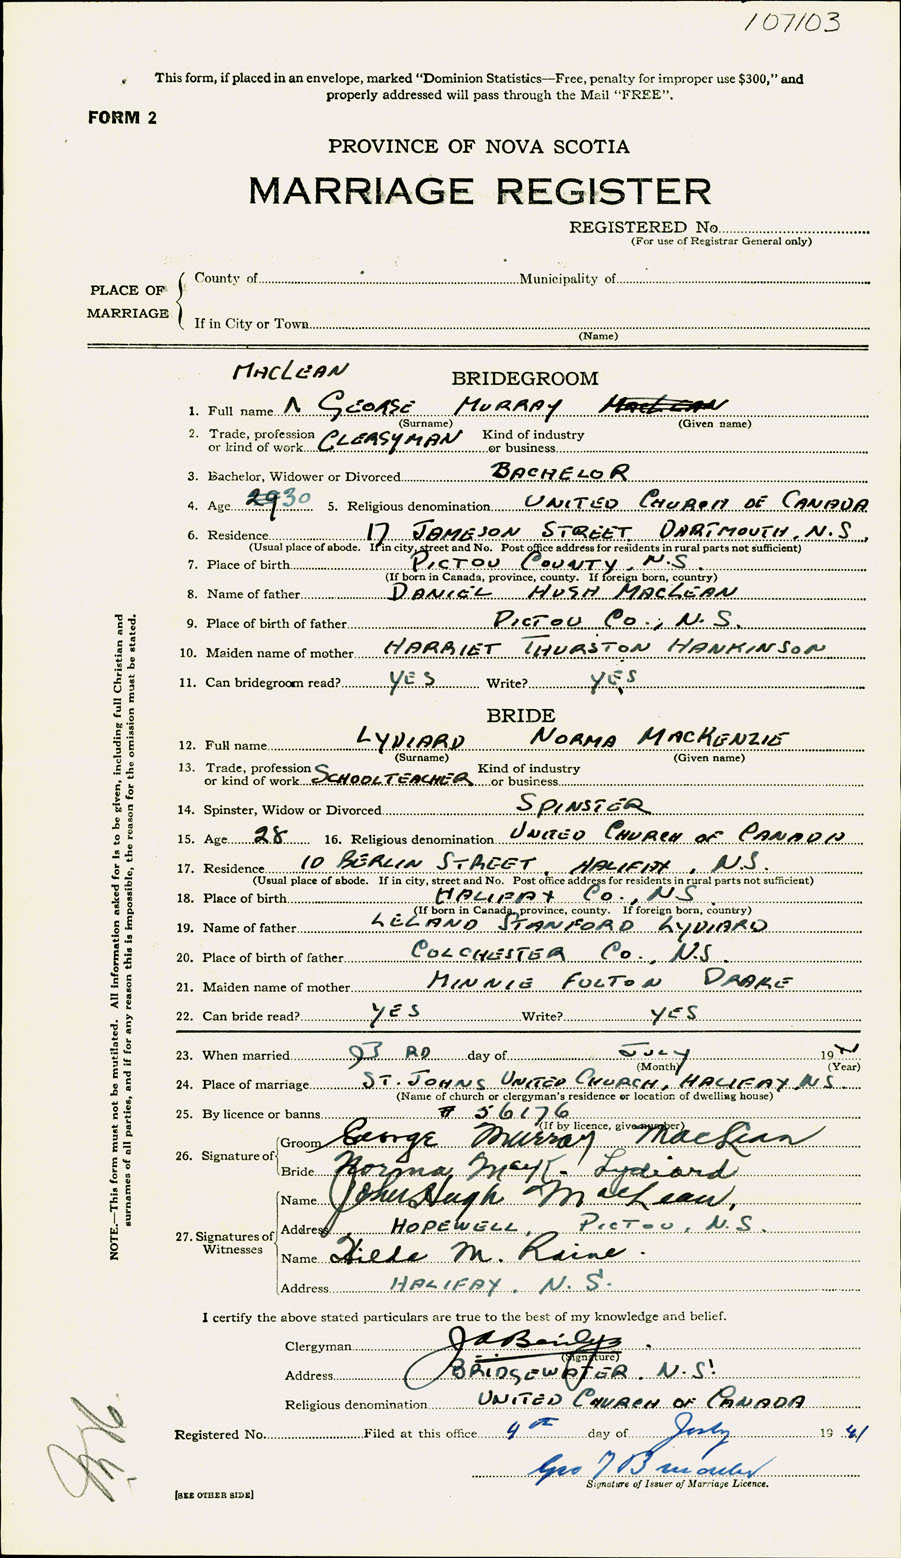 107103
This form, if placed in an envelope, marked "Dominion Statistics—Free, penalty for improper use $300," and
properly addressed will pass through the Mail "FREE".
FORM 2
PROVINCE OF NOVA SCOTIA
MARRIAGE REGISTER
REGISTERED No.
(For use of Registrar General only)
PLACE OF MARRIAGE
County of Municipality of
If in City or Town
(Name)
MACLEAN
BRIDEGROOM
1. Full name Λ GEORGE MURRAY MACLEAN
(Surname) (Given name)
2. Trade, profession or kind of work CLERGYMAN Kind of industry or business
3. Bachelor, Widower or Divorced BACHELOR
4. Age 29 30 5. Religious denomination UNITED CHURCH OF CANADA
6. Residence 17 JAMESON STREET, DARTMOUTH, N.S.
(Usual place of abode. If in city, street and No. Post office address for residents in rural parts not sufficient)
7. Place of birth PICTOU COUNTY, N.S.
(If born in Canada, province, county. If foreign born, country)
8. Name of father DANIEL HUGH MACLEAN
9. Place of birth of father PICTOU CO., N.S.
10. Maiden name of mother HARRIET THURSTON HANKINSON
11. Can bridegroom read? YES Write? YES
BRIDE
12. Full name LYDIARD NORMA MACKENZIE
(Surname) (Given name)
13. Trade, profession or kind of work SCHOOLTEACHER Kind of industry or business
14. Spinster, Widow or Divorced SPINSTER
15. Age 28 16. Religious denomination UNITED CHURCH OF CANADA
17. Residence 10 BERLIN STREET, HALIFAX, N.S.
(Usual place of abode. If in city, street and No. Post office address for residents in rural parts not sufficient)
18. Place of birth HALIFAX CO., N.S.
(If born in Canada, province, county. If foreign born, country)
19. Name of father LELAND STANFORD LYDIARD
20. Place of birth of father COLCHESTER CO., N.S.
21. Maiden name of mother MINNIE FULTON DRAKE
22. Can bride read? YES Write? YES
23. When married RD day of JULY 19
(Month) (Year)
24. Place of marriage ST. JOHNS UNITED CHURCH, HALIFAX, N.S.
(Name of church or clergyman's residence or location of dwelling house)
25. By licence or banns # 56176
(If by licence, give number)
26. Signature of
Groom George Murray MacLean
Bride Norma MacK. Lydiard
27. Signatures of Witnesses
Name John Hugh MacLean,
Address HOPEWELL, PICTOU, N.S.
Name Hilda M. Raine.
Address HALIFAX, N.S.
I certify the above stated particulars are true to the best of my knowledge and belief.
Clergyman
(Signature)
Address BRIDGEWATER, N.S.
Religious denomination UNITED CHURCH OF CANADA
Registered No. Filed at this office 4th day of July 19 41
Geo
Signature of Issuer of Marriage Licence.
[SEE OTHER SIDE]
NOTE.—This form must not be mutilated. All information asked for is to be given, including full Christian and
surnames of all parties, and if for any reason this is impossible, the reason for the omission must be stated.